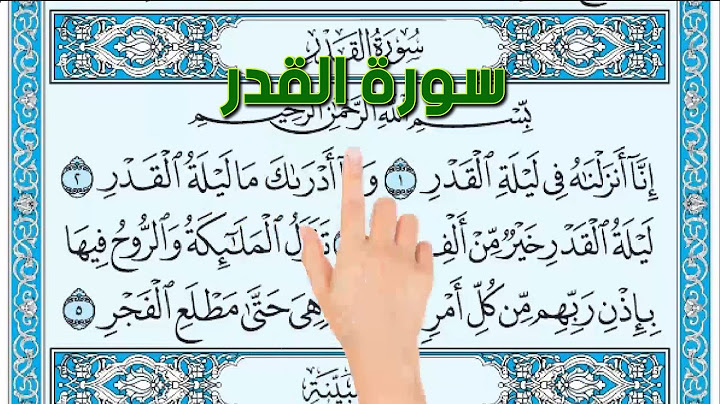 سُورَةُ القَدْرِ
سورة القدر
بِسْمِ اللَّهِ الرَّحْمَٰنِ الرَّحِيمِ
إِنَّآ أَنزَلْنَٰهُ فِى لَيْلَةِ ٱلْقَدْرِ ١ أَدْرَىٰكَ مَا لَيْلَةُ ٱلْقَدْرِ ٢
لَيْلَةُ ٱلْقَدْرِ خَيْرٌ مِّنْ أَلْفِ ٱلْمَلَٰٓئِكَةُ وَٱلرُّوحُ فِيهَا
بِإِذْنِ رَبِّهِم مِّن كُلِّ أَمْرٍ هِىَ حَتَّىٰ مَطْلَعِ ٱلْفَجْرِ ٥